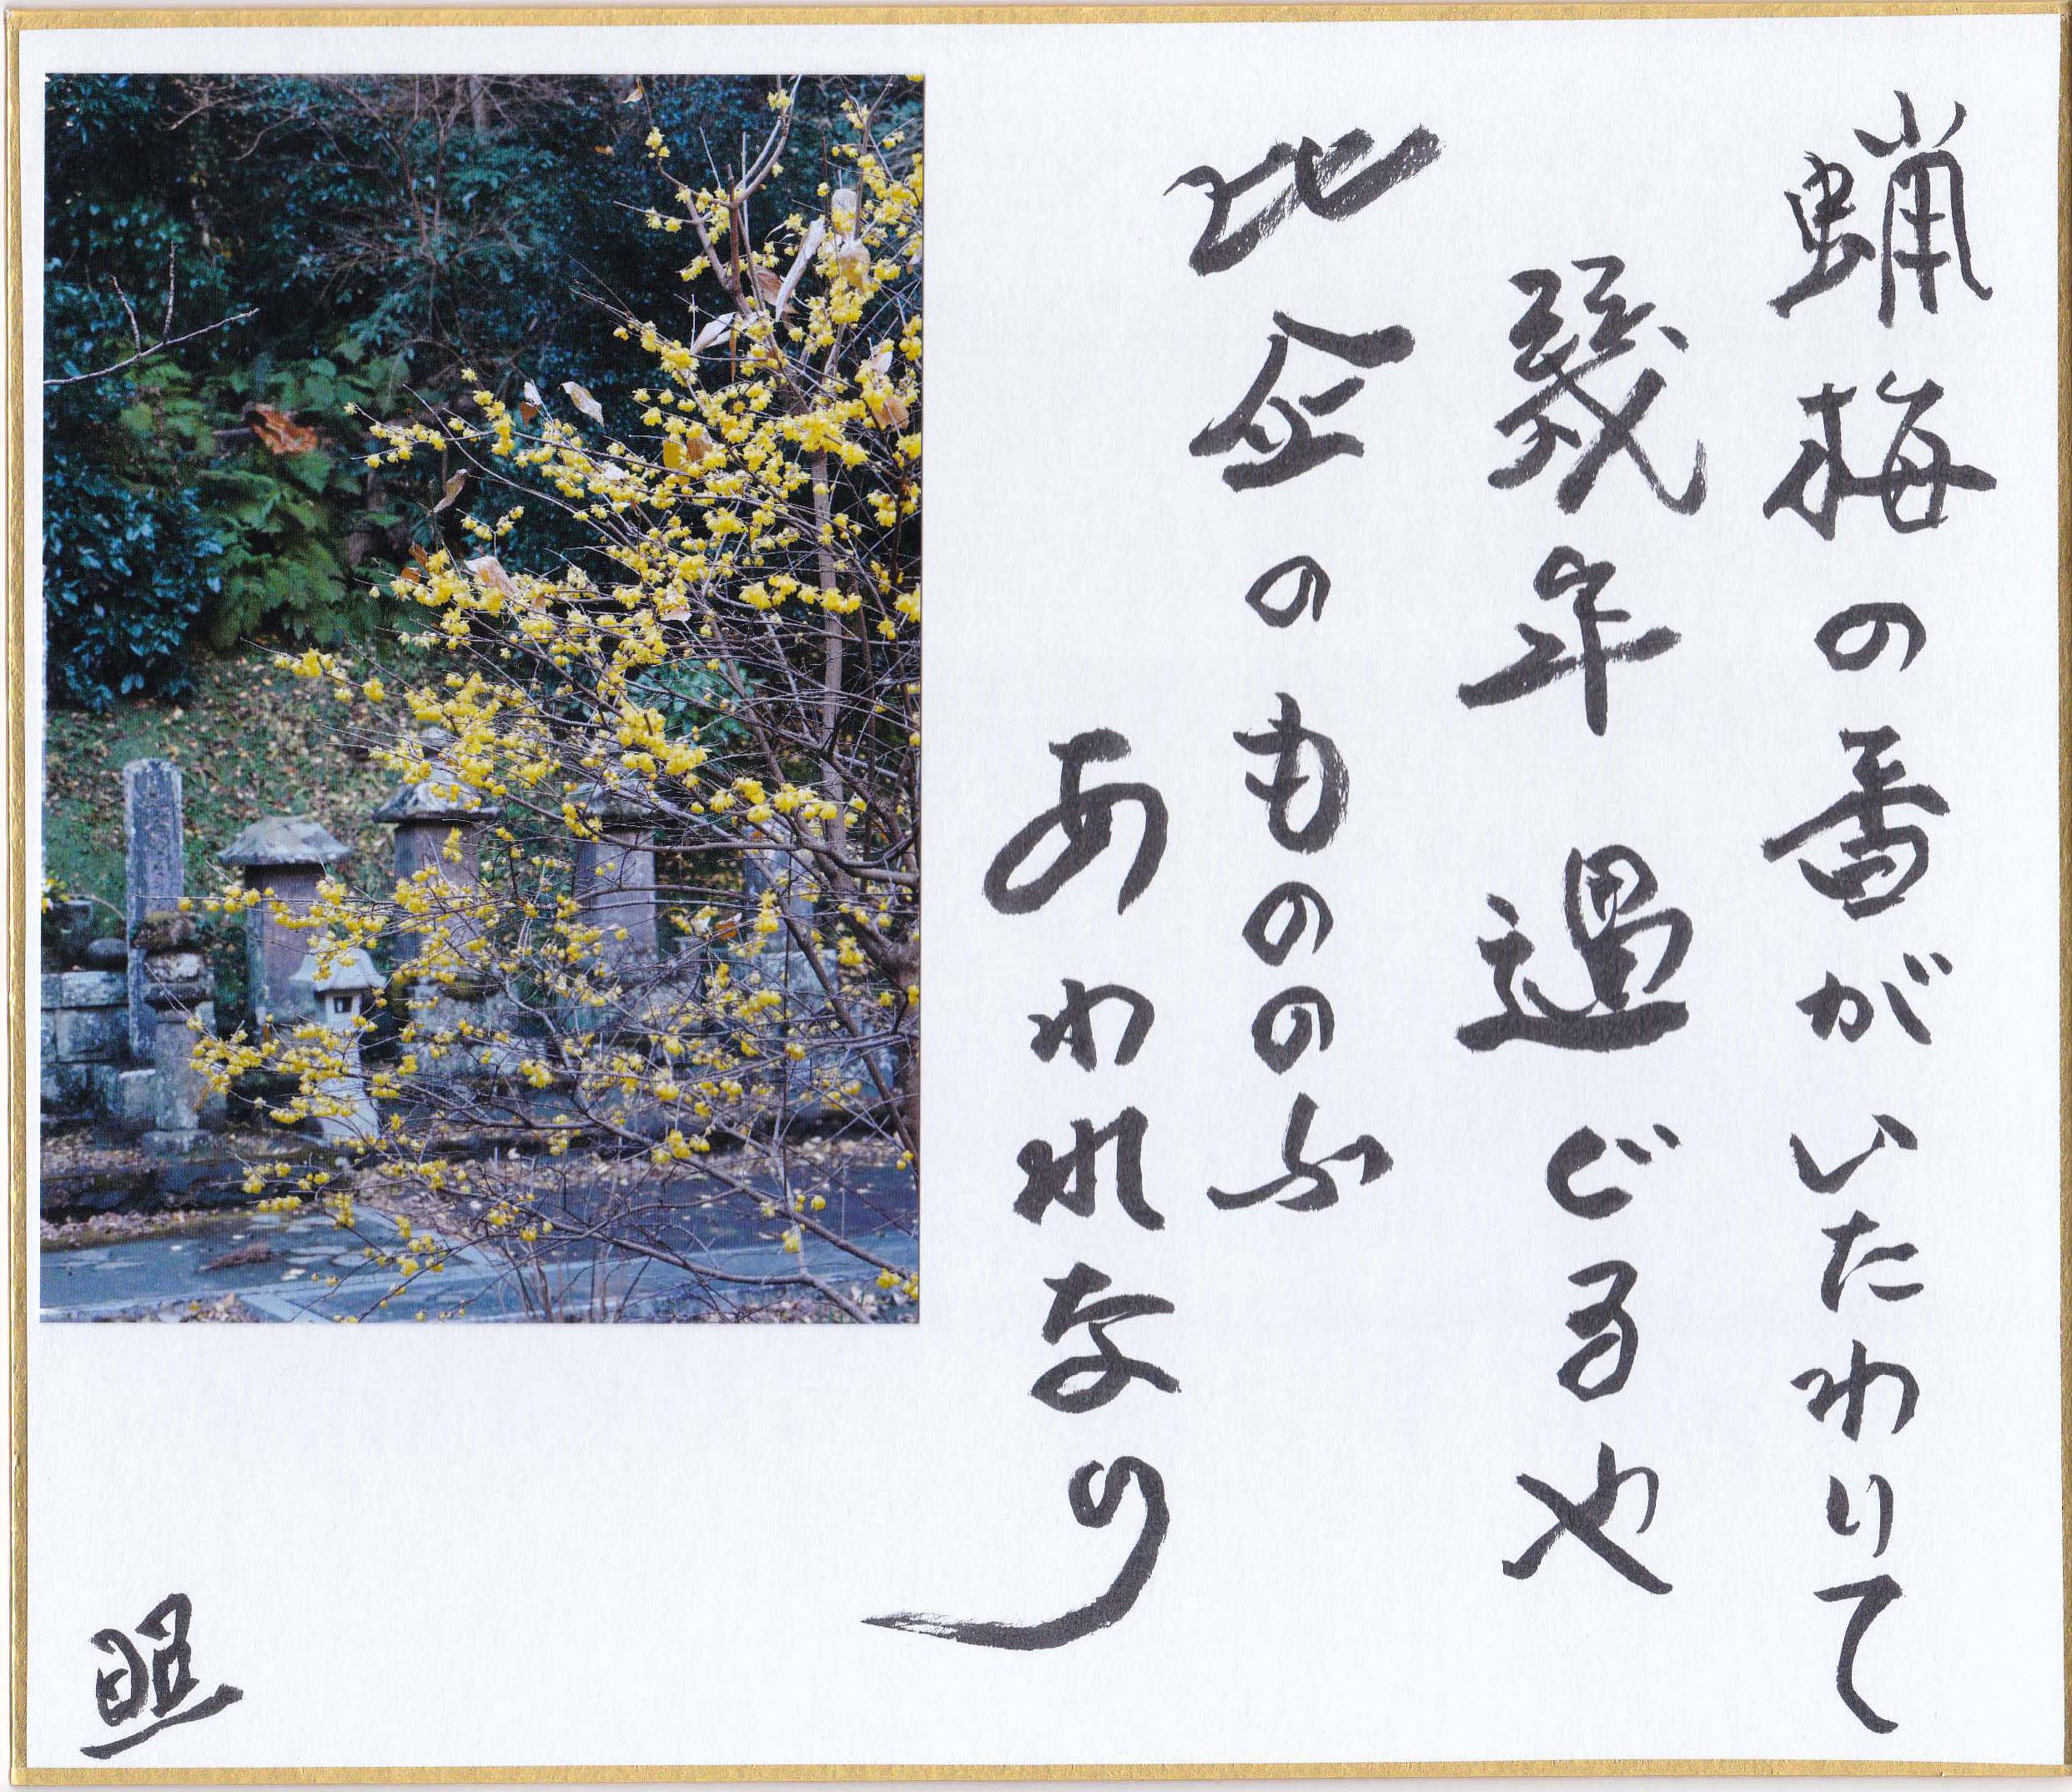 蝋梅の香がいたわりて
幾年過ぐるや
比企のもののふ
あわれなり
照